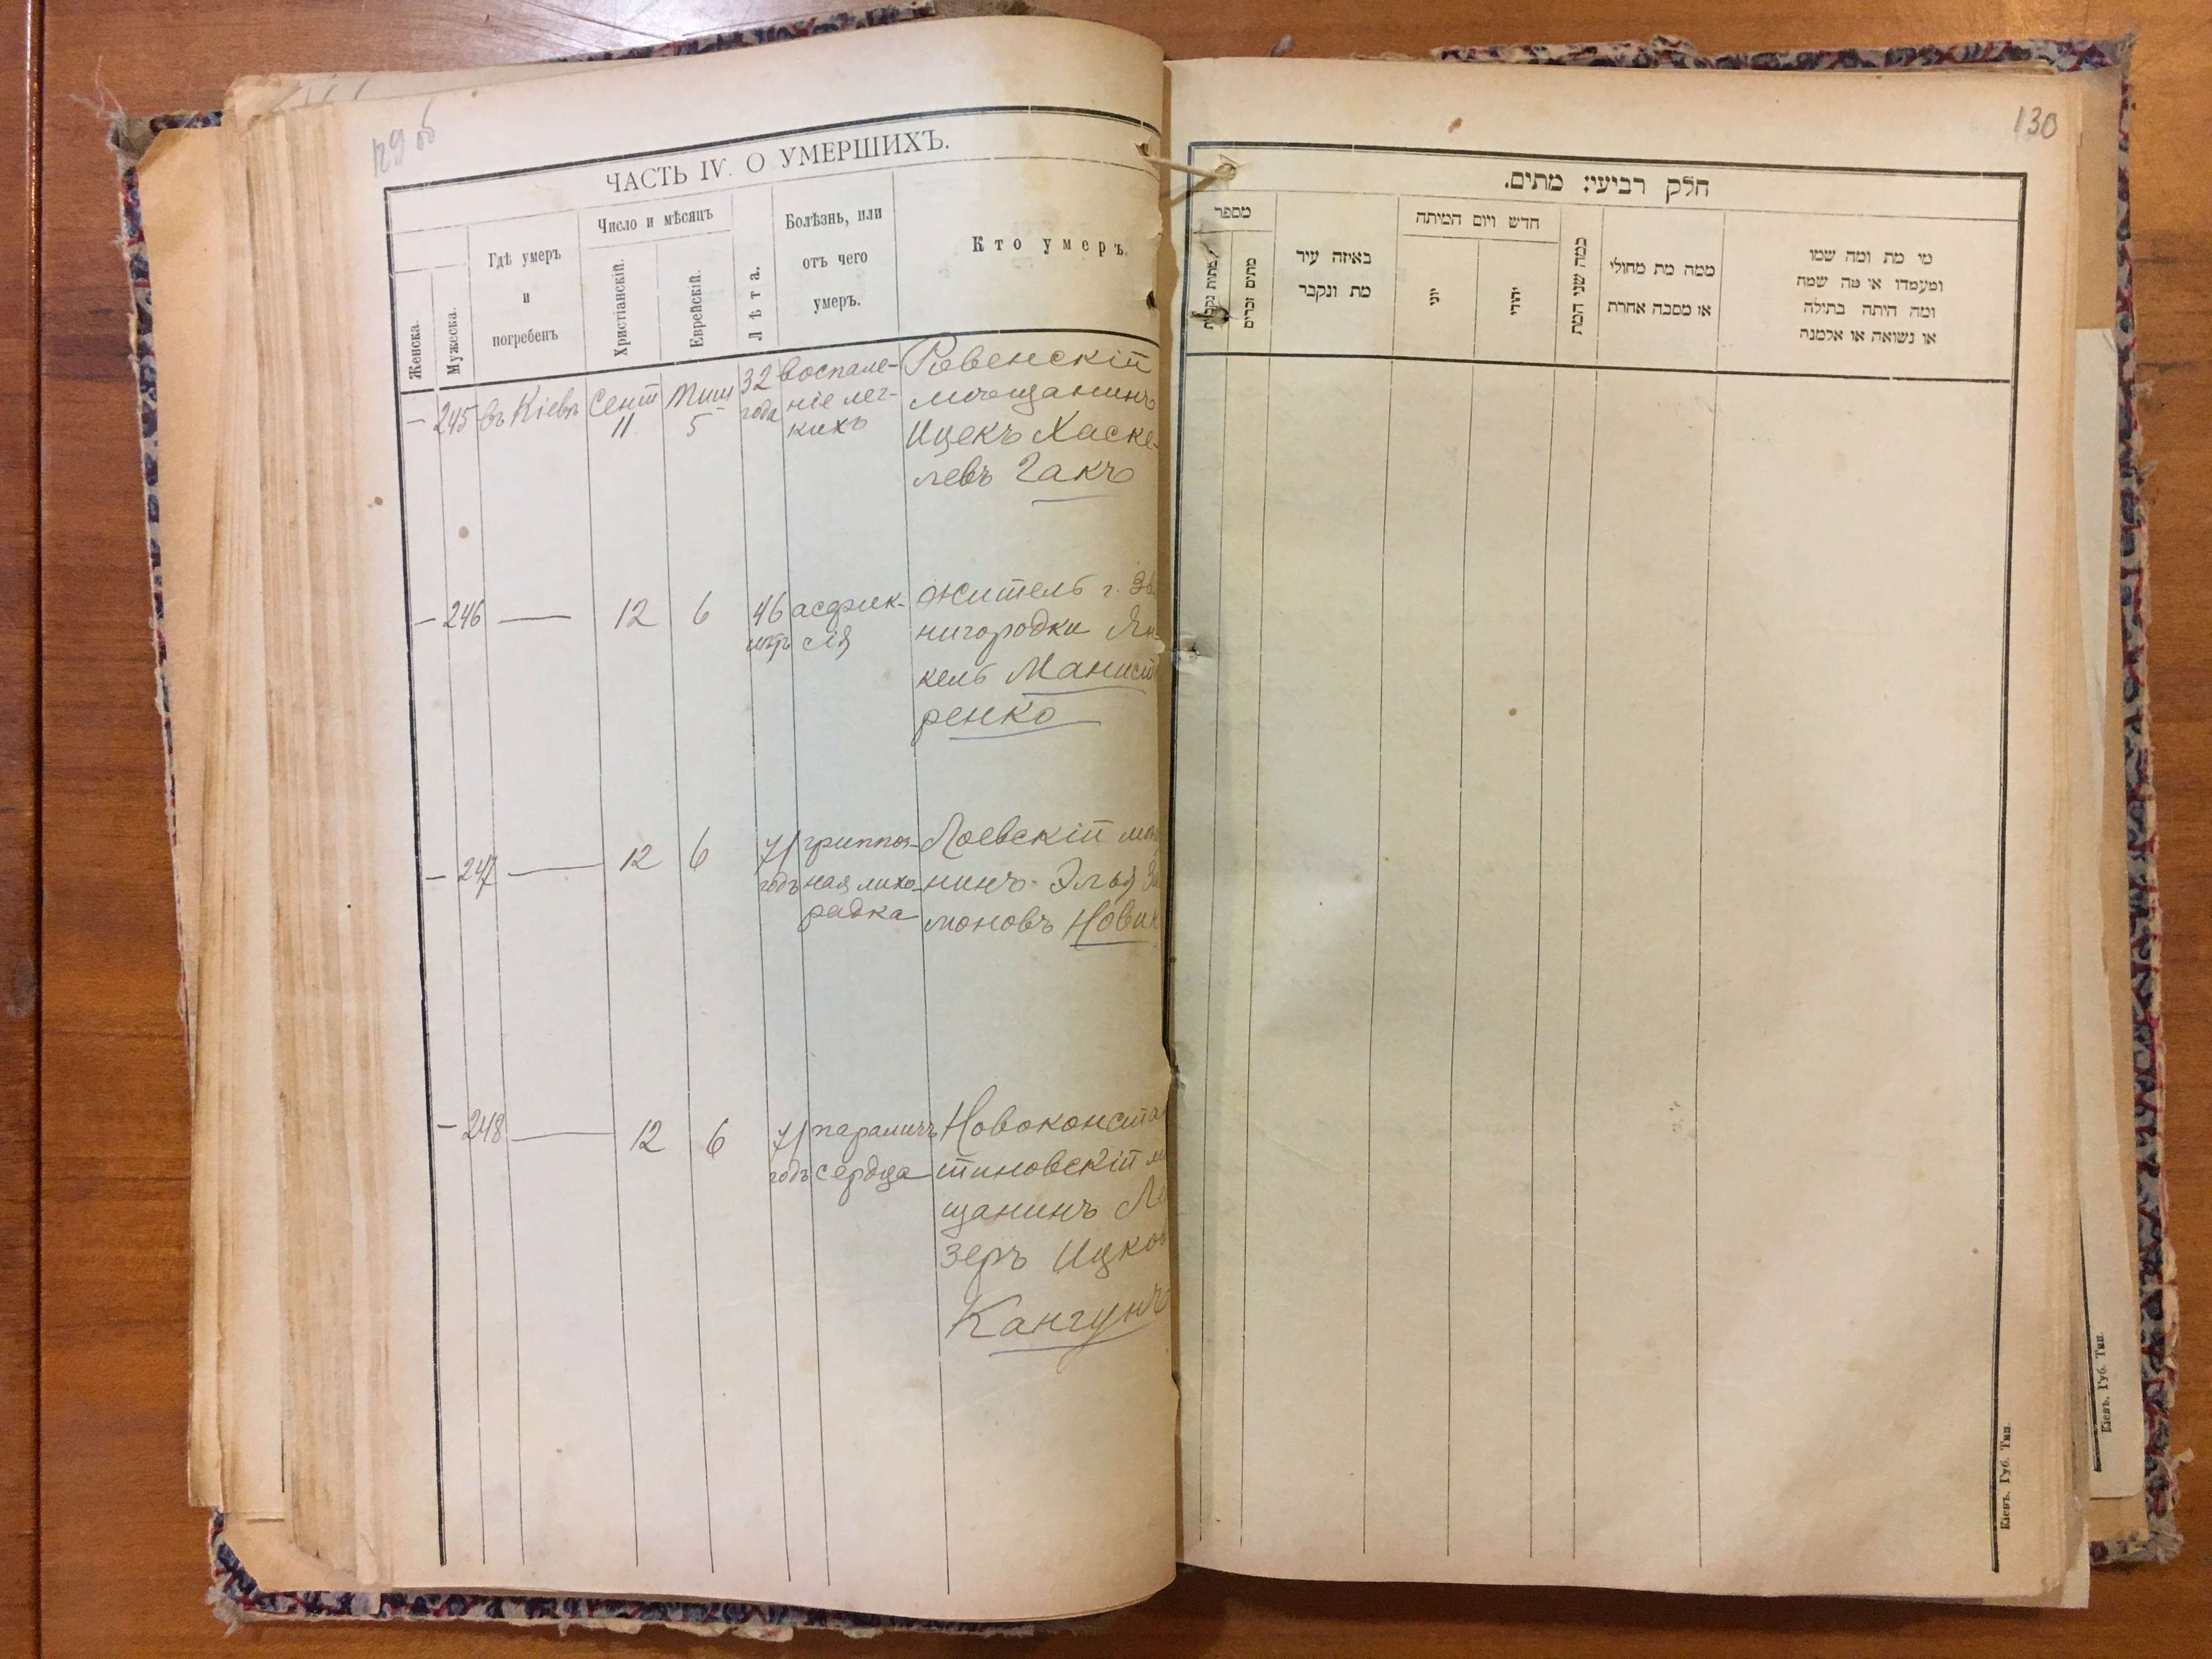 129 об
ЧАСТЬ IV. О УМЕРШИХЪ.
Женска.
Мужеска.
Гдѣ умеръ
и
погребенъ
Число и мѣсяцъ
Христіанскій.
Еврейскій.
Лѣта.
Болѣзнь, или
отъ чего
умеръ.
Кто умеръ.
— 245 въ Кіевѣ Сент 11 Тиш 5 32 года воспале-
ніе лег-
кихъ
Ровенскій
мѣщанинъ
Ицекъ Хаске-
левъ Гакъ
— 246 — 12 6 46 асфик-
лѣтъ сія
житель г. Зв
нигородки Ян
кель Манист
ренко
— 247 — 12 6 71 гриппоз-
годъ ная лихо-
радка
Лоевскій
нинъ Элья
моновъ Новик
— 248 — 12 6 71 параличъ
годъ сердца
Новоконстан
тиновскій
щанинъ Ле
зеръ Ицков
Кангунъ
130
חלק רביעי: מתים.
מספר
מתות נקבות
מתים זכרים
באיזה עיר
מת ונקבר
חדש ויום המיתה
יוני
יהודי
כמה שני המת
ממה מת מחולי
או מסבה אחרת
מי מת ומה שמו
ומעמדו או מה שמה
ומה היתה בתולה
או נשואה או אלמנה
Кіевъ. Губ. Тип.
Кіевъ. Губ. Тип.